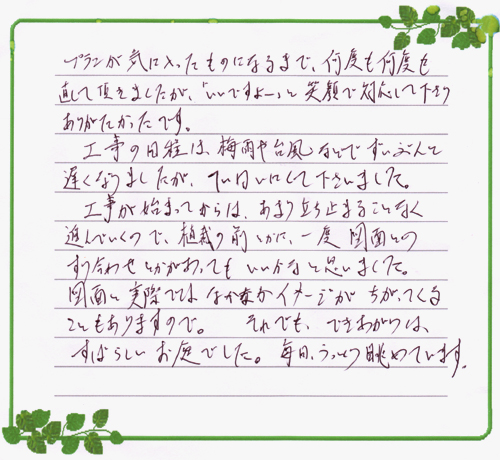 プランが気に入ったものになるまで、何度も何度も
直して頂きましたが、「いいですよー」っと笑顔で対応して下さり
ありがたかったです。
工事の日程は、梅雨や台風などでずいぶんと
遅くなりましたが、ていねいにして下さいました。
工事が始まってからは、あまり立ち止まることなく
進んでいくので、植栽の前とかに、一度図面との
すり合わせとかがあってもいいかなと思いました。
図面と実際では、なかなかイメージがちがってくる
こともありますので。 それでも、できあがりは、
すばらしいお庭でした。毎日、うっとり眺めています。